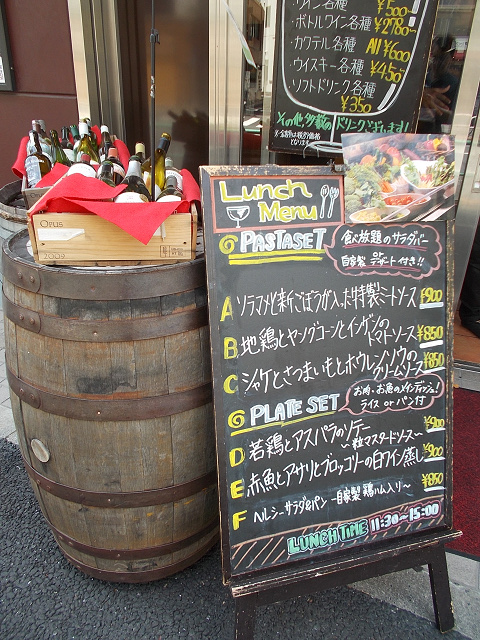 ワイン各種 ¥500〜
・ボトルワイン各種 ¥2780〜
・カクテル各種 All ¥600
・ウイスキー各種 ¥450〜
・ソフトドリンク各種
¥350
その他多数のドリンクございます!
OPUS
2009
Lunch
Menu
PASTA SET
食べ放題のサラダバー
自家製 デザート付き!!
A ソラマメと新ごぼうが入った特製ミートソース ¥900
B 地鶏とヤングコーンとインゲンの
トマトソース ¥850
C シャケとさつまいもとホウレンソウの
クリームソース ¥850
PLATE SET
お肉、お魚のメインディッシュ!
ライス or パン付
D 若鶏とアスパラのソテー
〜粒マスタードソース〜 ¥900
E 赤魚とアサリとブロッコリーの白ワイン蒸し ¥900
F ヘルシーサラダ&パン 〜自家製 鶏ハム入り〜 ¥850
LUNCH TIME 11:30~15:00